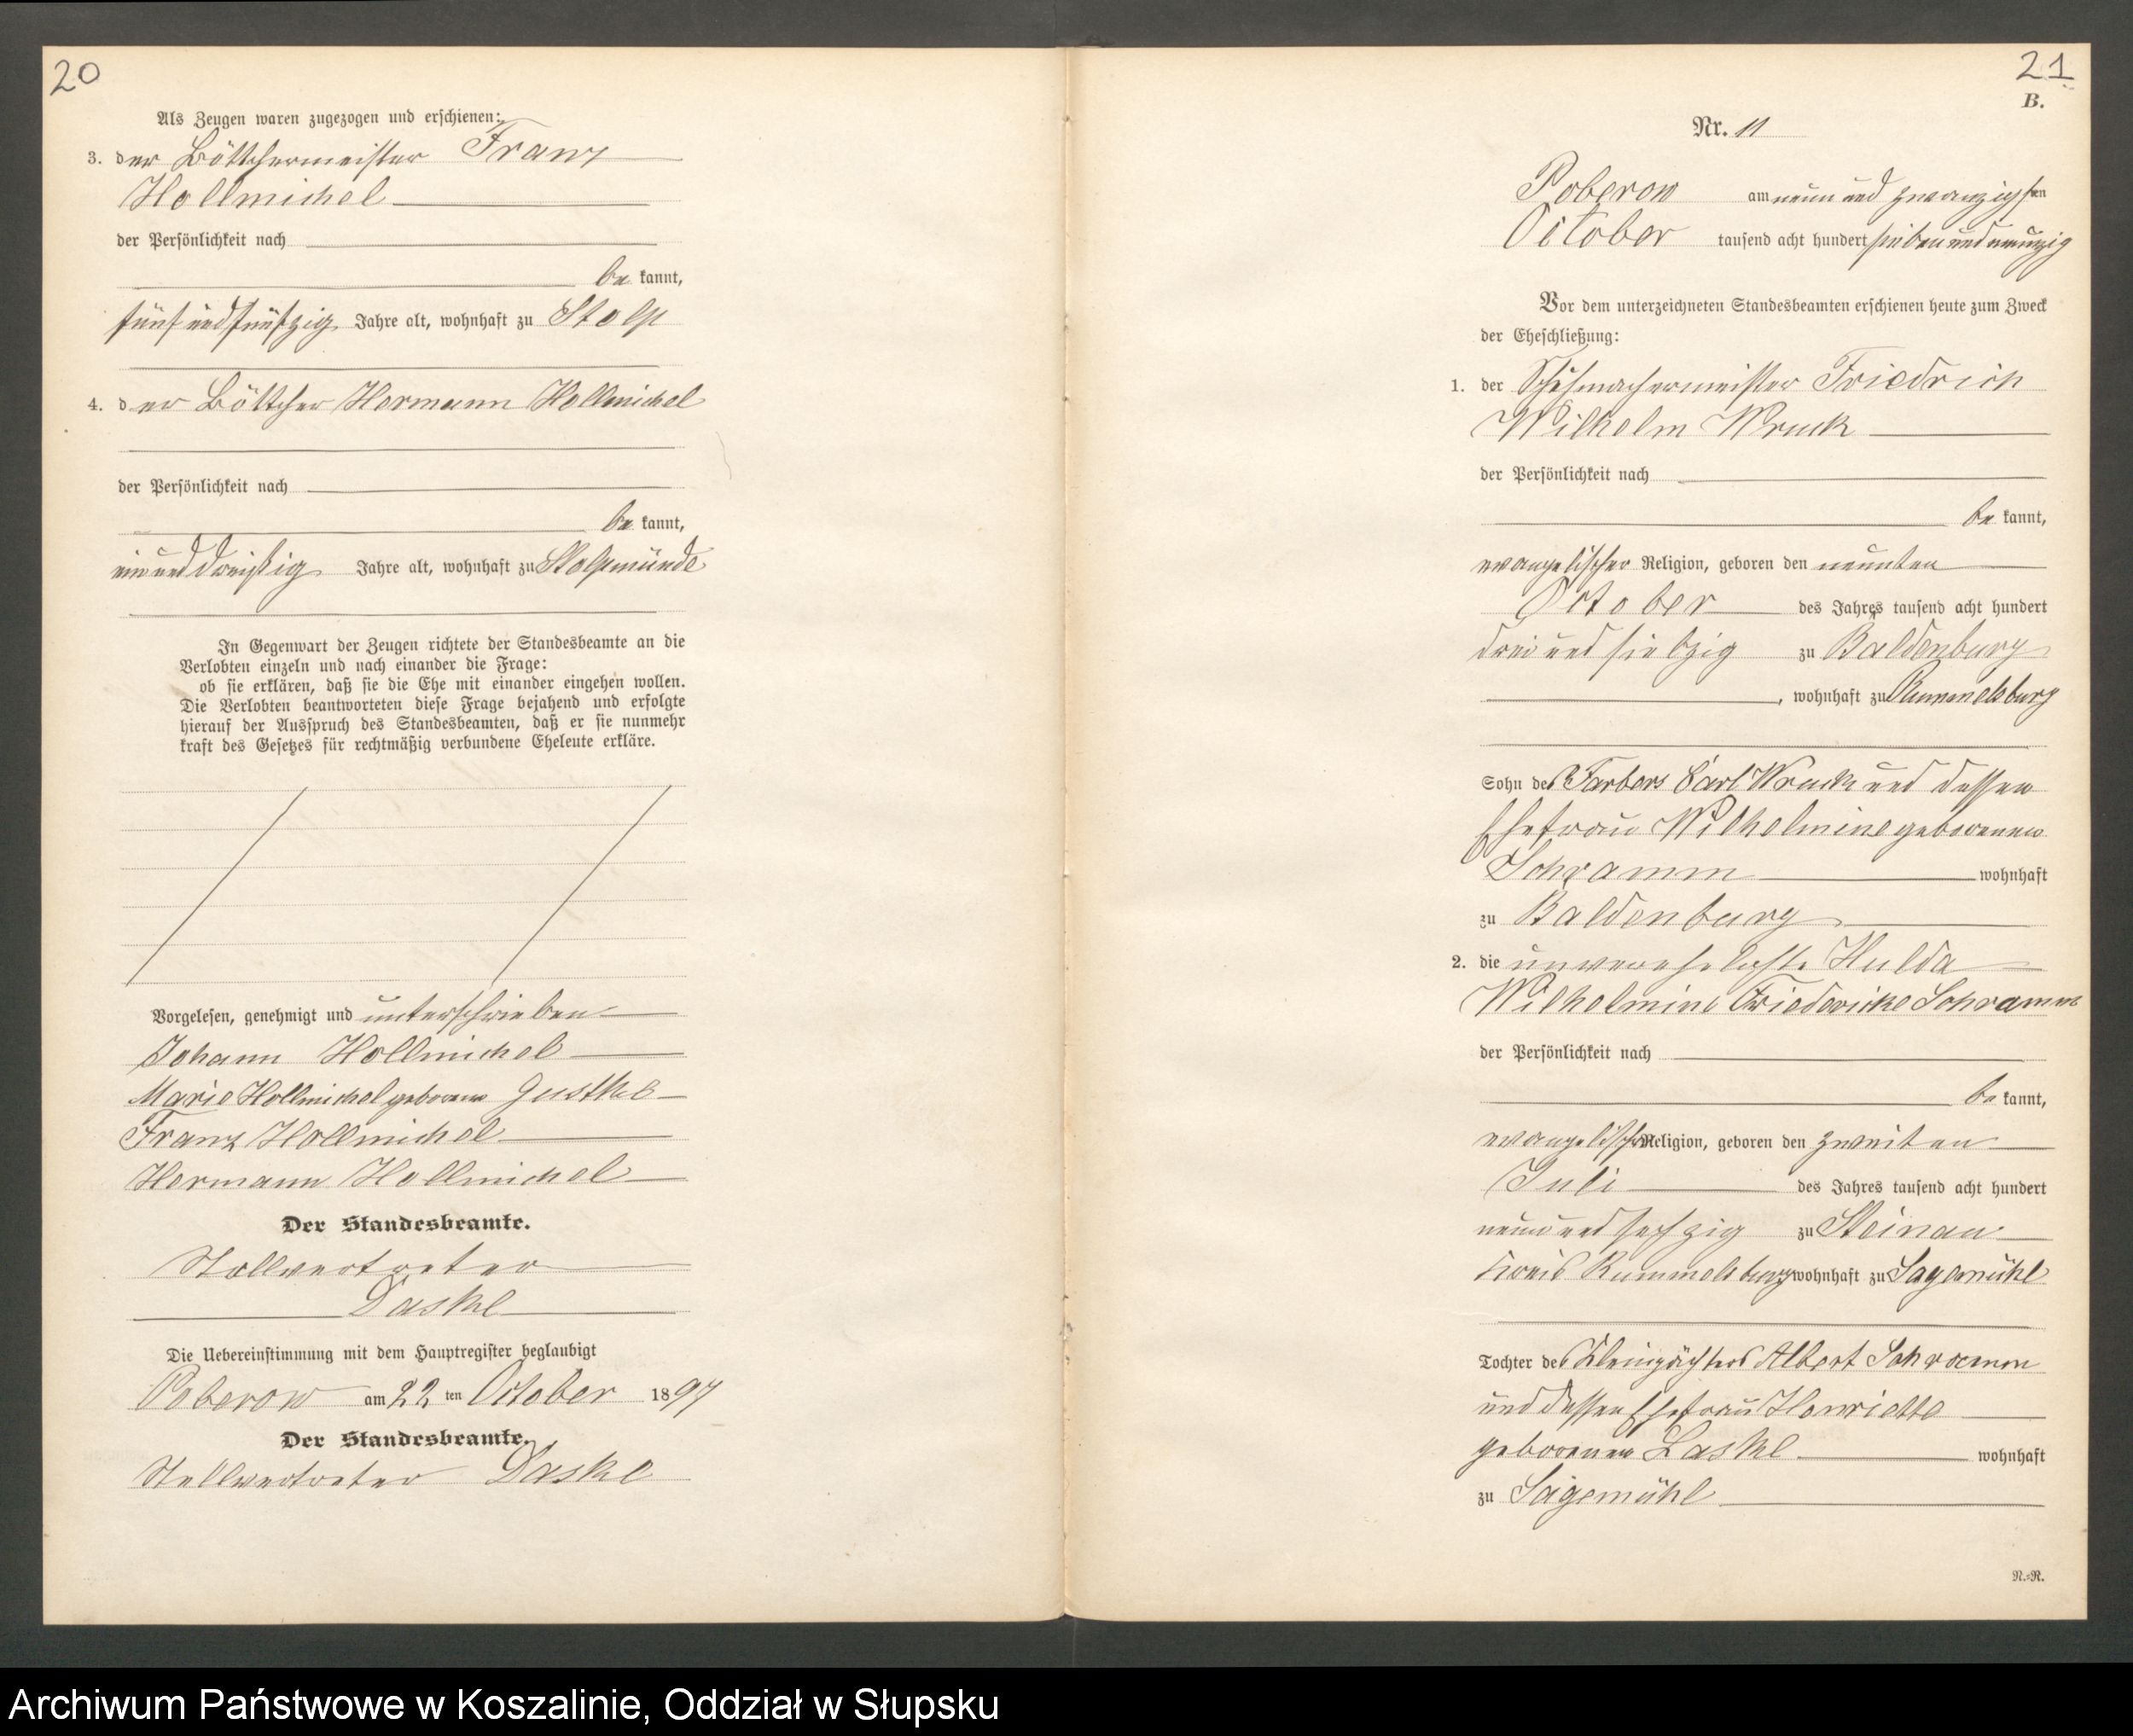 20
Als Zeugen waren zugezogen und erschienen:
3. der Böttchermeister Franz
Hollmichel
der Persönlichkeit nach
be kannt,
fünfundfünfzig Jahre alt, wohnhaft zu Stolp
4. der Böttcher Hermann Hollmichel
der Persönlichkeit nach
be kannt,
einunddreißig Jahre alt, wohnhaft zu Stolpmünde
In Gegenwart der Zeugen richtete der Standesbeamte an die
Verlobten einzeln und nach einander die Frage:
ob sie erklären, daß sie die Ehe mit einander eingehen wollen.
Die Verlobten beantworteten diese Frage bejahend und erfolgte
hierauf der Ausspruch des Standesbeamten, daß er sie nunmehr
kraft des Gesetzes für rechtmäßig verbundene Eheleute erkläre.
Vorgelesen, genehmigt und unterschrieben
Johann Hollmichel
Marie Hollmichel geborene Gustke
Franz Hollmichel
Hermann Hollmichel
Der Standesbeamte.
Stellvertreter
Daske
Die Uebereinstimmung mit dem Hauptregister beglaubigt
Poberow am 22 ten October 1897
Der Standesbeamte.
Stellvertreter Daske
21
B.
Nr. 11
Poberow am neun und zwanzigsten
October tausend acht hundert sieben und neunzig
Vor dem unterzeichneten Standesbeamten erschienen heute zum Zweck
der Eheschließung:
1. der Schuhmachermeister Friedrich
Wilhelm Wruck
der Persönlichkeit nach
be kannt,
evangelischer Religion, geboren den neunten
October des Jahres tausend acht hundert
drei und siebzig zu Baldenburg
, wohnhaft zu Rummelsburg
Sohn des Färbers Carl Wruck und dessen
Ehefrau Wilhelmine geborenen
Schramm wohnhaft
zu Baldenburg
2. die unverehelichte Hulda
Wilhelmine Friedericke Schramm
der Persönlichkeit nach
be kannt,
evangelischer Religion, geboren den zweiten
Juli des Jahres tausend acht hundert
neun und sechzig zu Steinau
Kreis Rummelsburg wohnhaft zu Sagemühl
Tochter des Kleinpächters Albert Schramm
und dessen Ehefrau Henriette
geborenen Laskl wohnhaft
zu Sägemühl
N.=R.
Archiwum Państwowe w Koszalinie, Oddział w Słupsku